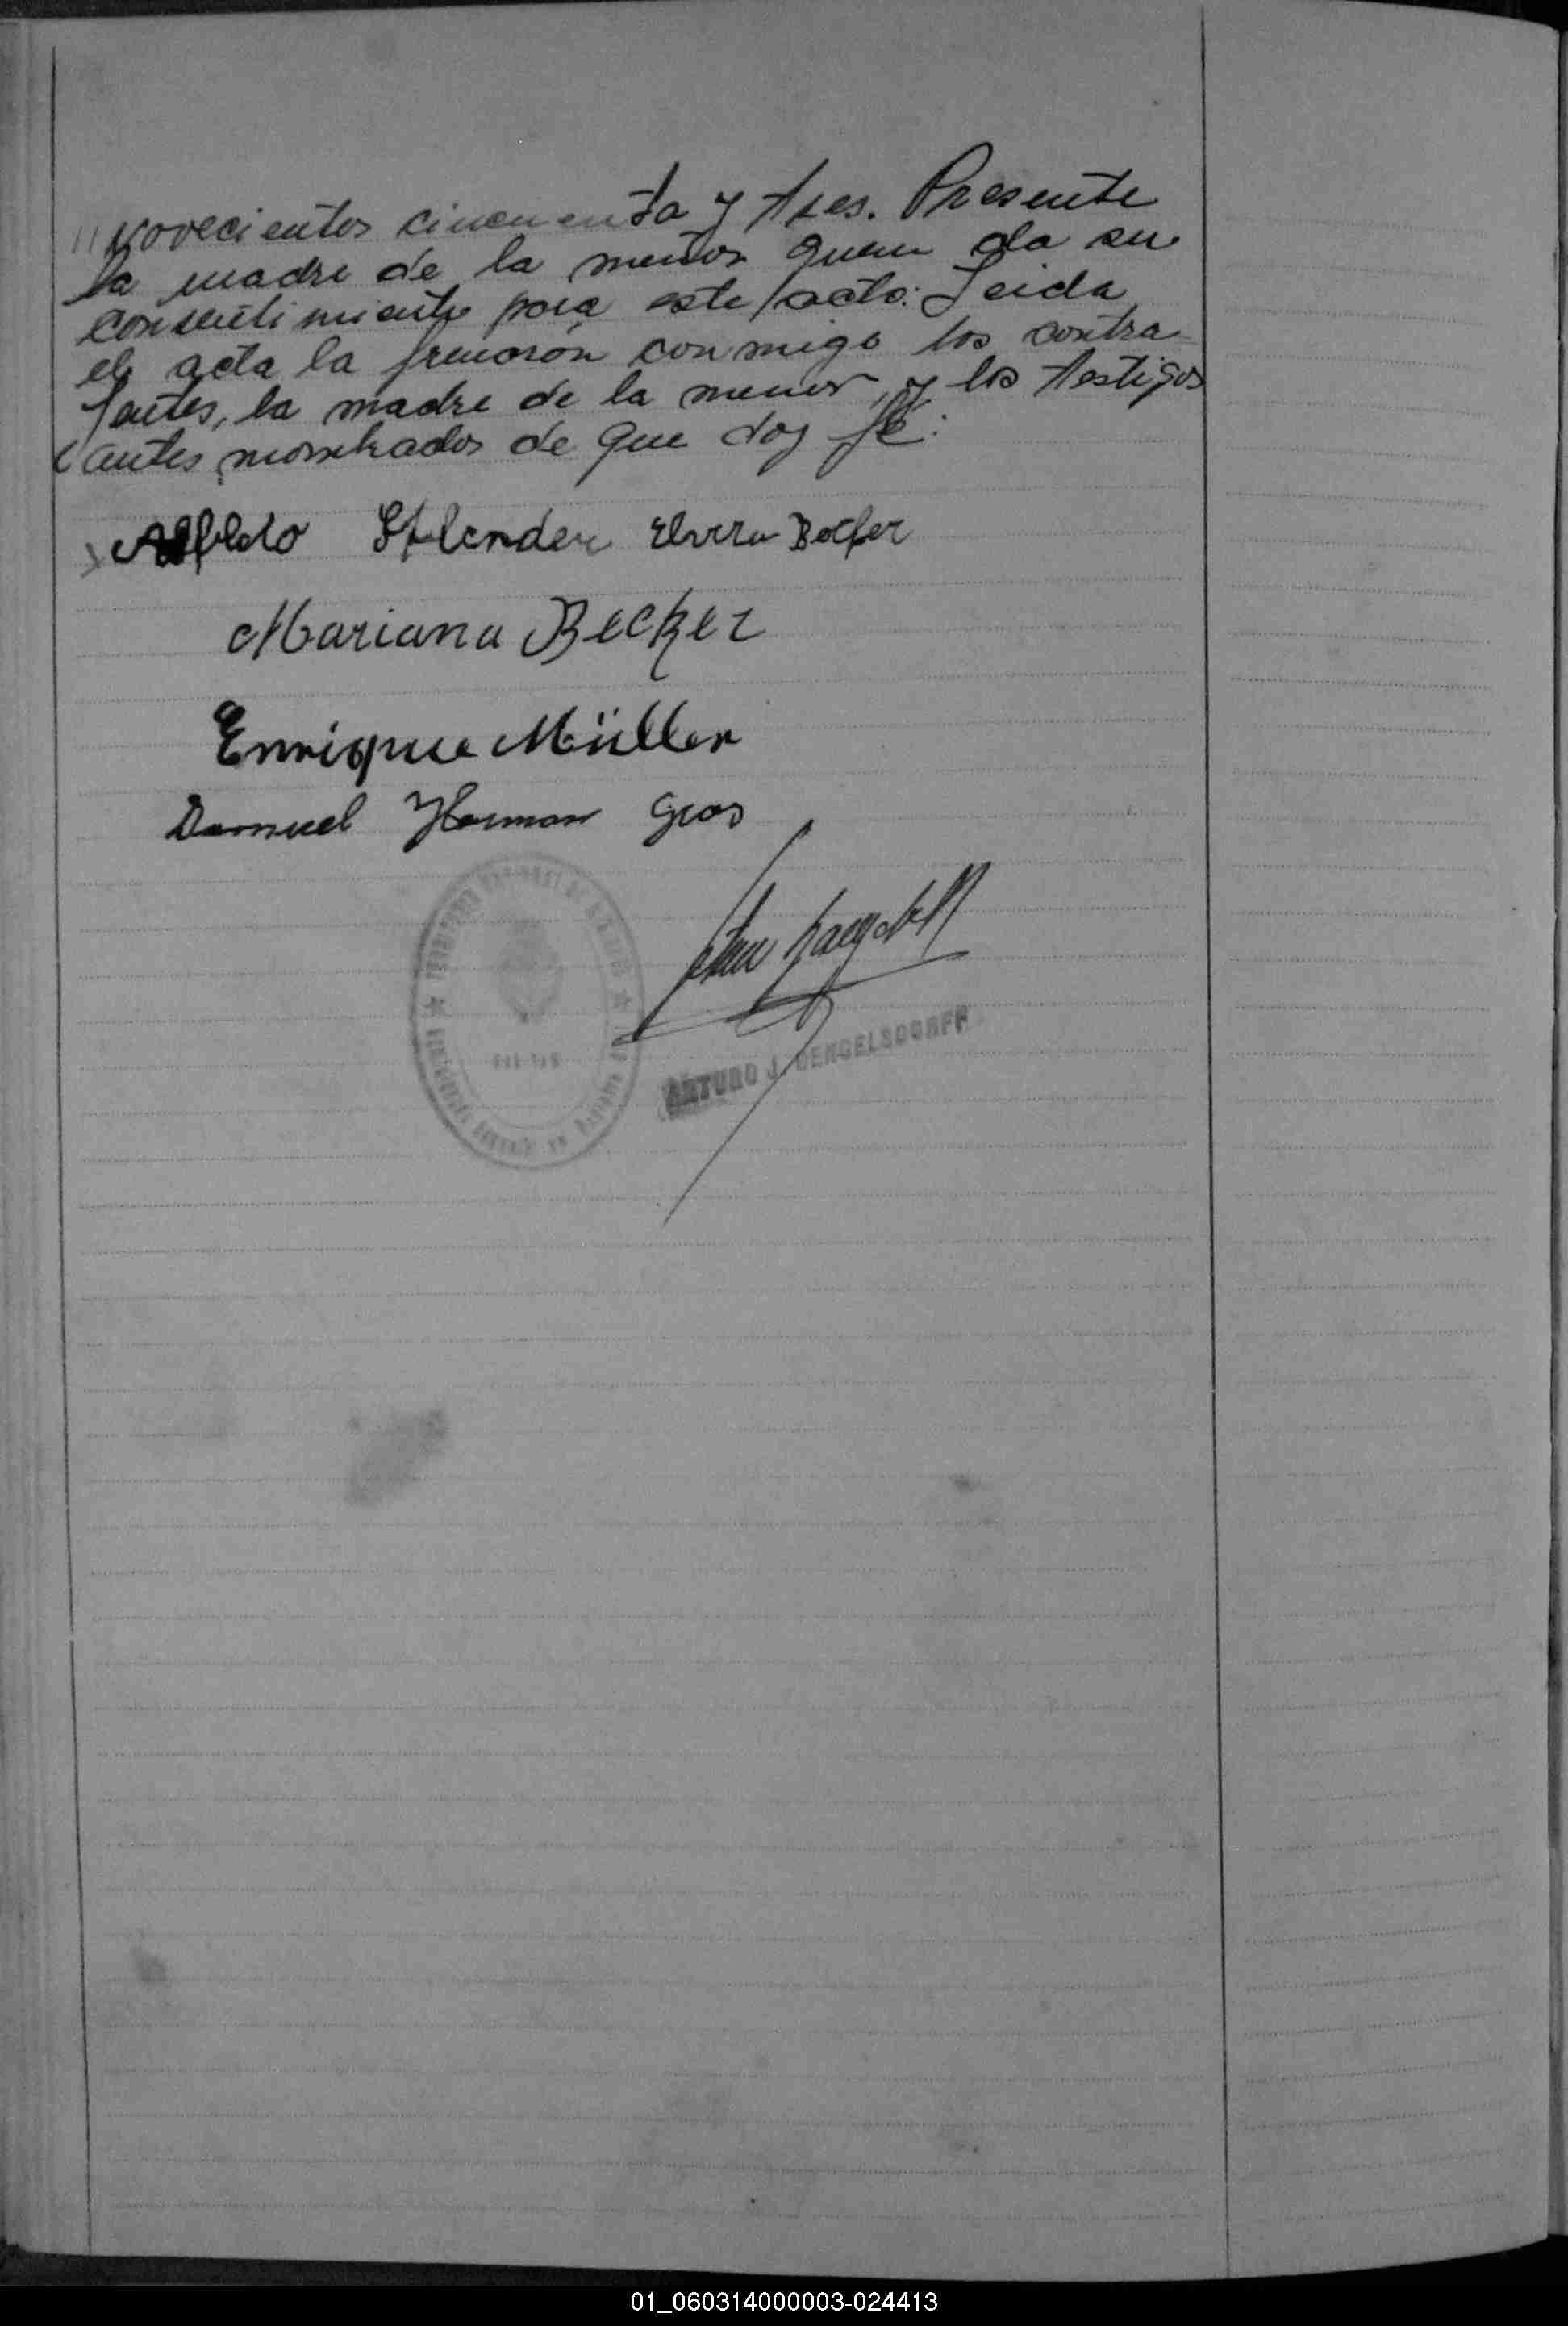 // novecientos cincuenta y tres. Presente
la madre de la menor quien da su
consentimiento para este acto: Leida
el acta la firmaron conmigo los contra-
yentes, la madre de la menor, y los testigos
antes nombrados de que doy fé:
Elvira
Mariana Becker
Enrique Müller
Samuel Herman Gros
ARTURO J. DENGELSDORFF
01_060314000003-024413